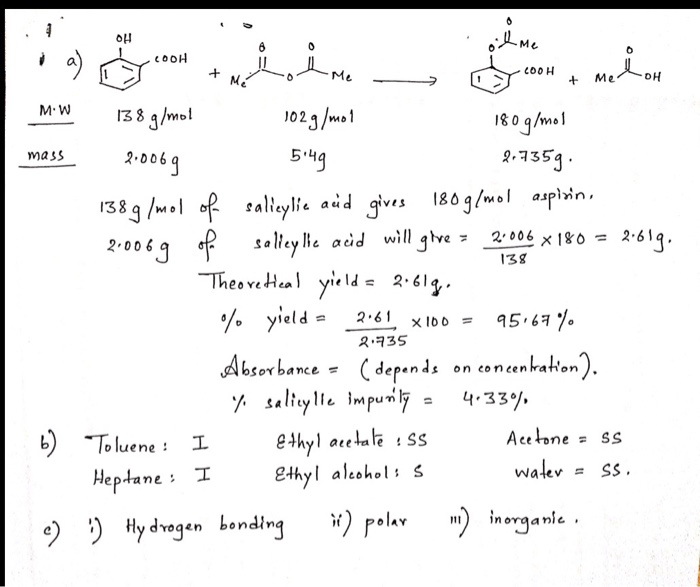 a) OH COOH + Me O O O Me → O O Me COOH + Me O OH
M.W 138 g/mol 102g/mol 180g/mol
mass 2.006g 5.4g 2.735g.
138g/mol of salicylic acid gives 180g/mol aspirin.
2.006g of salicylic acid will give = 2.006/138 × 180 = 2.61g.
Theoretical yield = 2.61g.
% yield = 2.61/2.735 ×100 = 95.67%
Absorbance = (depends on concentration).
% salicylic impurity = 4.33%.
b) Toluene : I Ethyl acetate : SS Acetone = SS
Heptane : I Ethyl alcohol : S water = SS.
c) i) Hydrogen bonding ii) polar iii) inorganic.